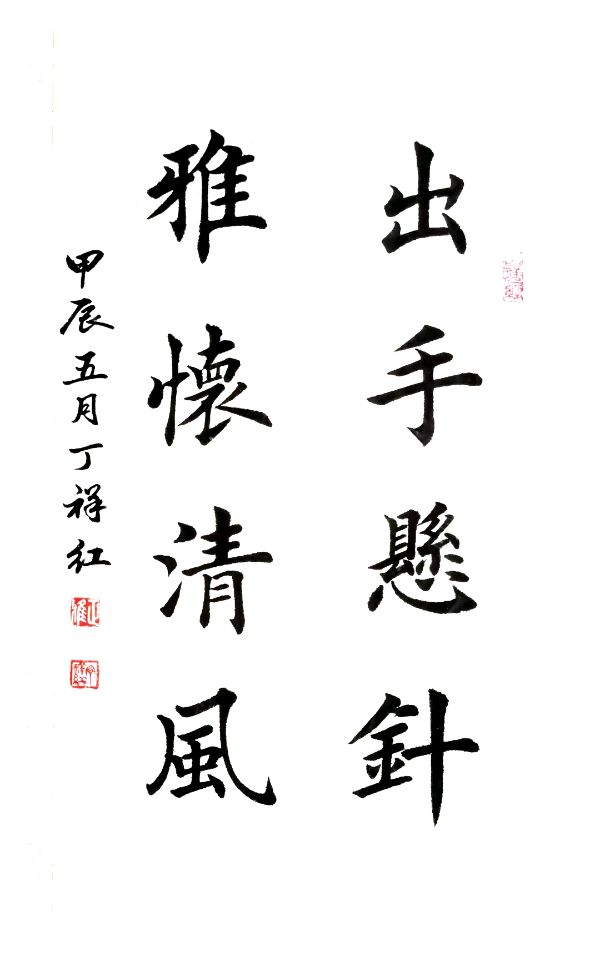 出手懸針
雅懷清風
甲辰五月丁祥红